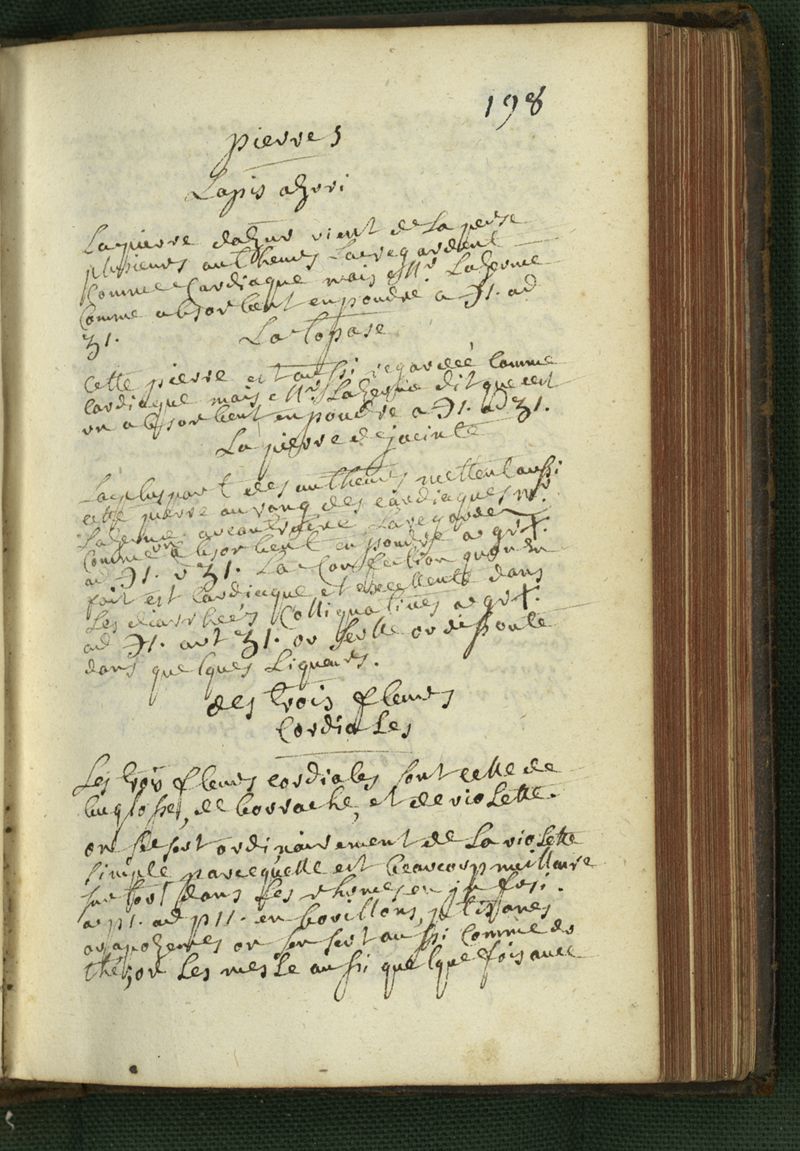 198
pierres
Lapis azuri
La pierre dazur vient de La perse
plusieurs autheurs La regardent
comme Cardiaque mais Mr. Lazerme
comme absorbent en poudre a ℈1. ad
ʒ1.
La topase
cette pierre est aussi regardeé comme
Cardiaque mais Mr. Lazerme dit que cest
un absorbent en poudre a ℈1. ad ʒ1.
La pierre de jacinte
La pluspart des autheurs mettent aussi
cette pierre au rang des cardiaques Mr.
Lazerme au contraire La regarde
comme un absorbent en poudre a gr x.
ad ℈1. ʒ1. La Confection quon en
fait est Cardiaque et excellente dans
Les diarrheés Colliquatives a gr x.
ad ℈1. aut ʒ1. on selle or dissoute
dans quelques Liqueurs.
des trois fleurs
Cordiales
Les trois fleurs cordiales sont celle de
buglosse, de borrache, et de violette.
on se sert ordinairement de La violette
simple parcequelle est beaucoup meillure
surtout dans les rhumes en infusi.
a p1. ad p11. en bouillons, ptisanes
ou apozemes on sen sert aussi comme du
thé; on Les mesle aussi quelque fois avec